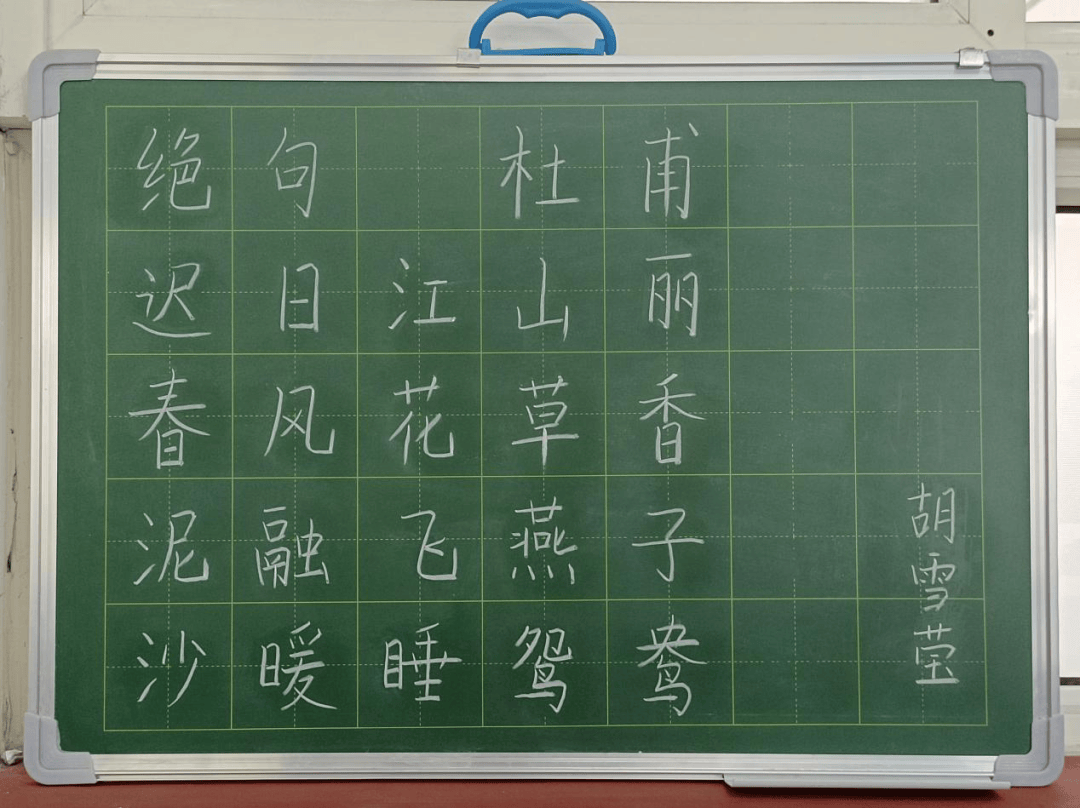 绝句 杜甫
迟日江山丽
春风花草香
泥融飞燕子
沙暖睡鸳鸯
胡雪莹